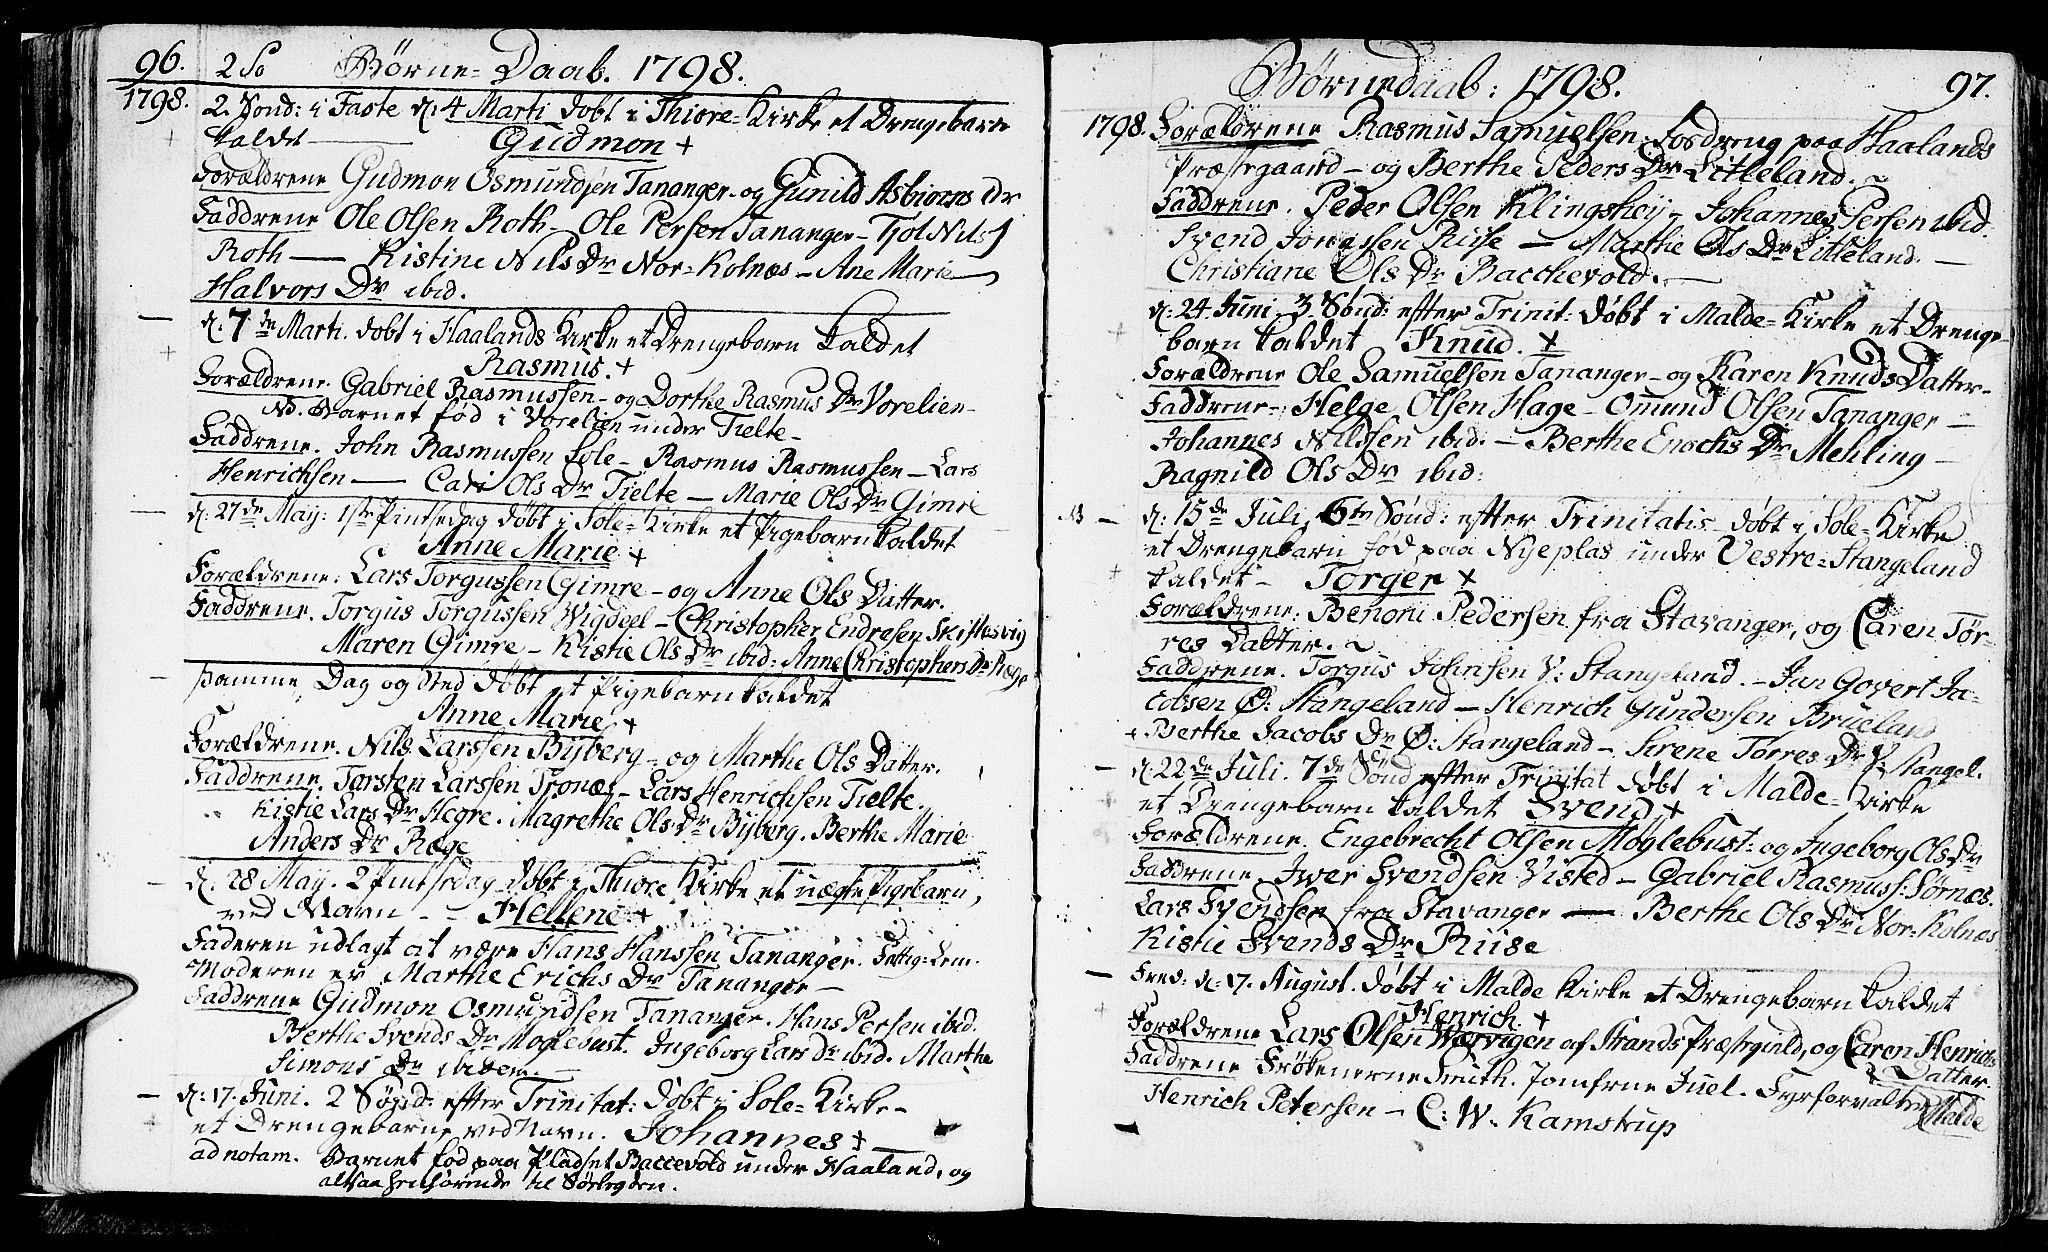 96. 2 So Børne-Daab. 1798.
1798. 2. Sønd: i Faste d: 4 Marti døbt i Thiore-Kirke et Drengebarn
kaldet Gudmon +
Forældrene Gudmon Osmundsen Tananger - og Gunild Asbiorns Dr
Faddrene Ole Olsen Roth - Ole Persen Tananger - Tjol Nils
Roth - Kistine Nils Dr Nor-Kolnæs - Ane Marie
Halvors Dr ibid.
d: 7de Marti. døbt i Haalands Kirke et Drengebarn kaldet
Rasmus. +
Forældrene. Gabriel Rasmussen - og Dorthe Rasmus Dr Vorelien -
NB. Barnet fød i Vorelien under Tielte -
Faddrene. John Rasmussen Sole - Rasmus Rasmussen - Lars
Henrichsen - Cari Ols Dr Tielte - Marie Ols Dr Gimre
d: 27de May: 1ste Pintsedag døbt i Sole-Kirke et Pigebarn kaldet
Anne Marie +
Forældrene: Lars Torgussen Gimre - og Anne Ols Datter.
Faddrene. Torgus Torgussen Wigdeel - Christopher Endresen Skiftesvig
Maren Gimre - Kistie Ols Dr ibid: Anne Christophers Dr Rege
Samme Dag og Sted døbt et Pigebarn kaldet
Anne Marie +
Forældrene. Nils Larssen Byberg - og Marthe Ols Datter.
Faddrene. Torsten Larssen Tronæs - Lars Henrichsen Tielte.
Kistie Lars Dr Hegre. Magrethe Ols Dr Byberg. Berthe Marie
Anders Dr Ræge
d: 28 May. 2 Pintsedag døbt i Thiore Kirke et uægte Pigebarn,
ved Navn - - Hellene +
Faderen udlagt at være Hans Hanssen Tananger. Fattig-Lem.
Moderen er Marthe Erichs Dr Tananger -
Faddrene Gudmon Osmundsen Tananger. Hans Persen ibid.
Berthe Svends Dr Moglebust. Ingeborg Lars Dr ibid. Marthe
Simons Dr ibidem. -
d: 17. Juni. 2 Sønd: efter Trinitat: døbt i Sole-Kirke -
et Drengebarn ved Navn. Johannes +
ad notam. Barnet fød paa Pladset Baccevold under Haaland, og
altsaa henhørende til Sørbygden.
Børnedaab: 1798. 97.
1798. Forældrene Rasmus Samuelsen, Tosdreng paa Haalands
Præstegaard - og Berthe Peders Dr Litleland.
Faddrene. Peder Olsen Klingshey - Johannes Persen ibid.
Svend Jonassen Riise - Marthe Ols Dr Litleland. -
Christiane Ols Dr Bacchevold. -
d: 24 Juni. 3 Sønd: efter Trinit: døbt i Malde-Kirke et Drenge-
barn kaldet Knud. +
Forældrene Ole Samuelsen Tananger - og Karen Knuds Datter -
Faddrene - Helge Olsen Hage - Omund Olsen Tananger -
Johannes Nilssen ibid. - Berthe Enochs Dr Mehling -
Ragnild Ols Dr ibid:
NB - d: 15de Juli, 6te Sønd: efter Trinitatis døbt i Sole-Kirke
et Drengebarn fød paa Nyeplas under Vestre-Stangeland
kaldet - Torger +
Forældrene: Benoni Pedersen fra Stavanger, og Caren Tør-
res Datter.
Faddrene. Torgus Johnsen V: Stangeland. - Jan Govert Ja-
cobsen Ø: Stangeland - Henrich Gundersen Brueland
Berthe Jacobs Dr Ø: Stangeland - Sirene Tørres Dr V: Stangel.
d: 22de Juli. 7de Sønd efter Trinitat døbt i Malde-Kirke
et Drengebarn kaldet Svend +
Forældrene. Engebrecht Olsen Moglebust: og Ingeborg Ols Dr
Faddrene. Iver Svendsen Visted - Gabriel Rasmuss: Sørnæs.
Lars Svendsen fra Stavanger - Berthe Ols Dr Nor-Kolnæs
Kistie Svends Dr Riise
Fred: d: 17. August. døbt i Malde Kirke et Drengebarn kaldet
Henrich. +
Forældrene Lars Olsen Wærvigen af Strands Præstegield, og Caren Henrichs
Datter.
Faddrene Frøkenerne Smith. Jomfrue Juel. Fyrforvalter
Malde
Henrich Petersen - C: W. Kamstrup